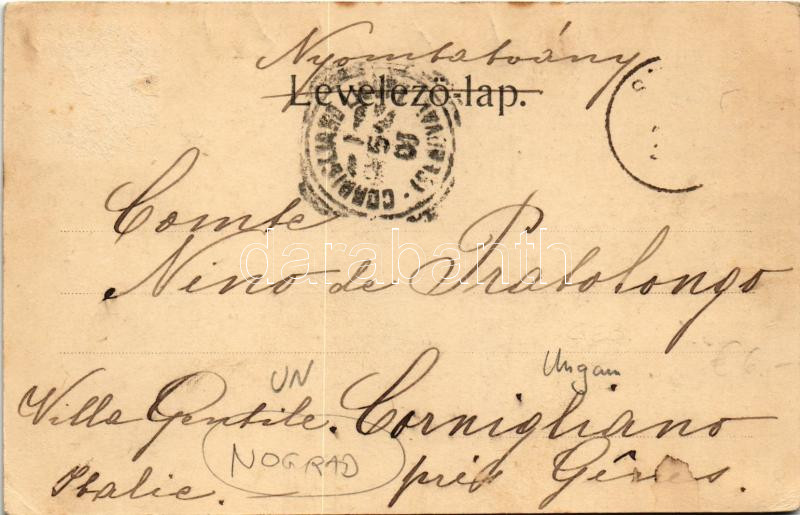 Nyomtatvány
Levelező-lap.
Comte
Nino de Pratolongo
darabanth
UN
Ungarn
Villa Gentile. Cornigliano
NOGRAD
près Gênes.
Italie.